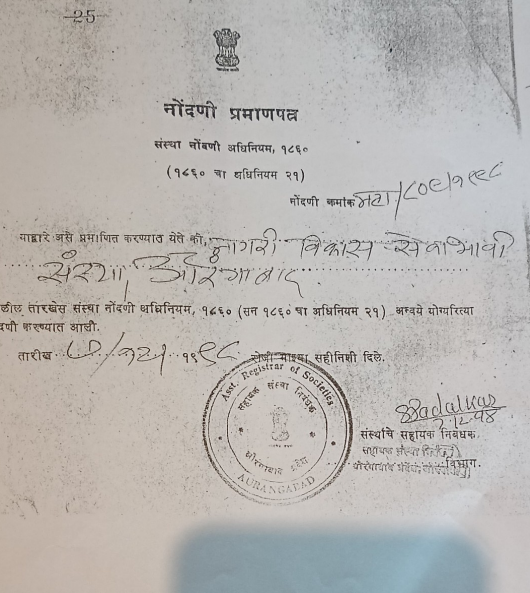 25
नोंदणी प्रमाणपत्र
संस्था नोंदणी अधिनियम, १८६०
(१८६० चा अधिनियम २१)
नोंदणी क्रमांक महा/८०९/१९९८
याद्वारे असे प्रमाणित करण्यात येते की, नागरी विकास सेवाभावी
संस्था, औरंगाबाद.
खालील तारखेस संस्था नोंदणी अधिनियम, १८६० (सन १८६० चा अधिनियम २१) अन्वये योग्यरित्या
नोंदणी करण्यात आली.
तारीख १९९८ रोजी माझ्या सहीनिशी दिले.
Asst. Registrar of Societies
सहायक संस्था निबंधक
औरंगाबाद प्रदेश
AURANGABAD
7.12.98
संस्थांचे सहायक निबंधक.
सहायक संस्था निबंधक
विभाग.